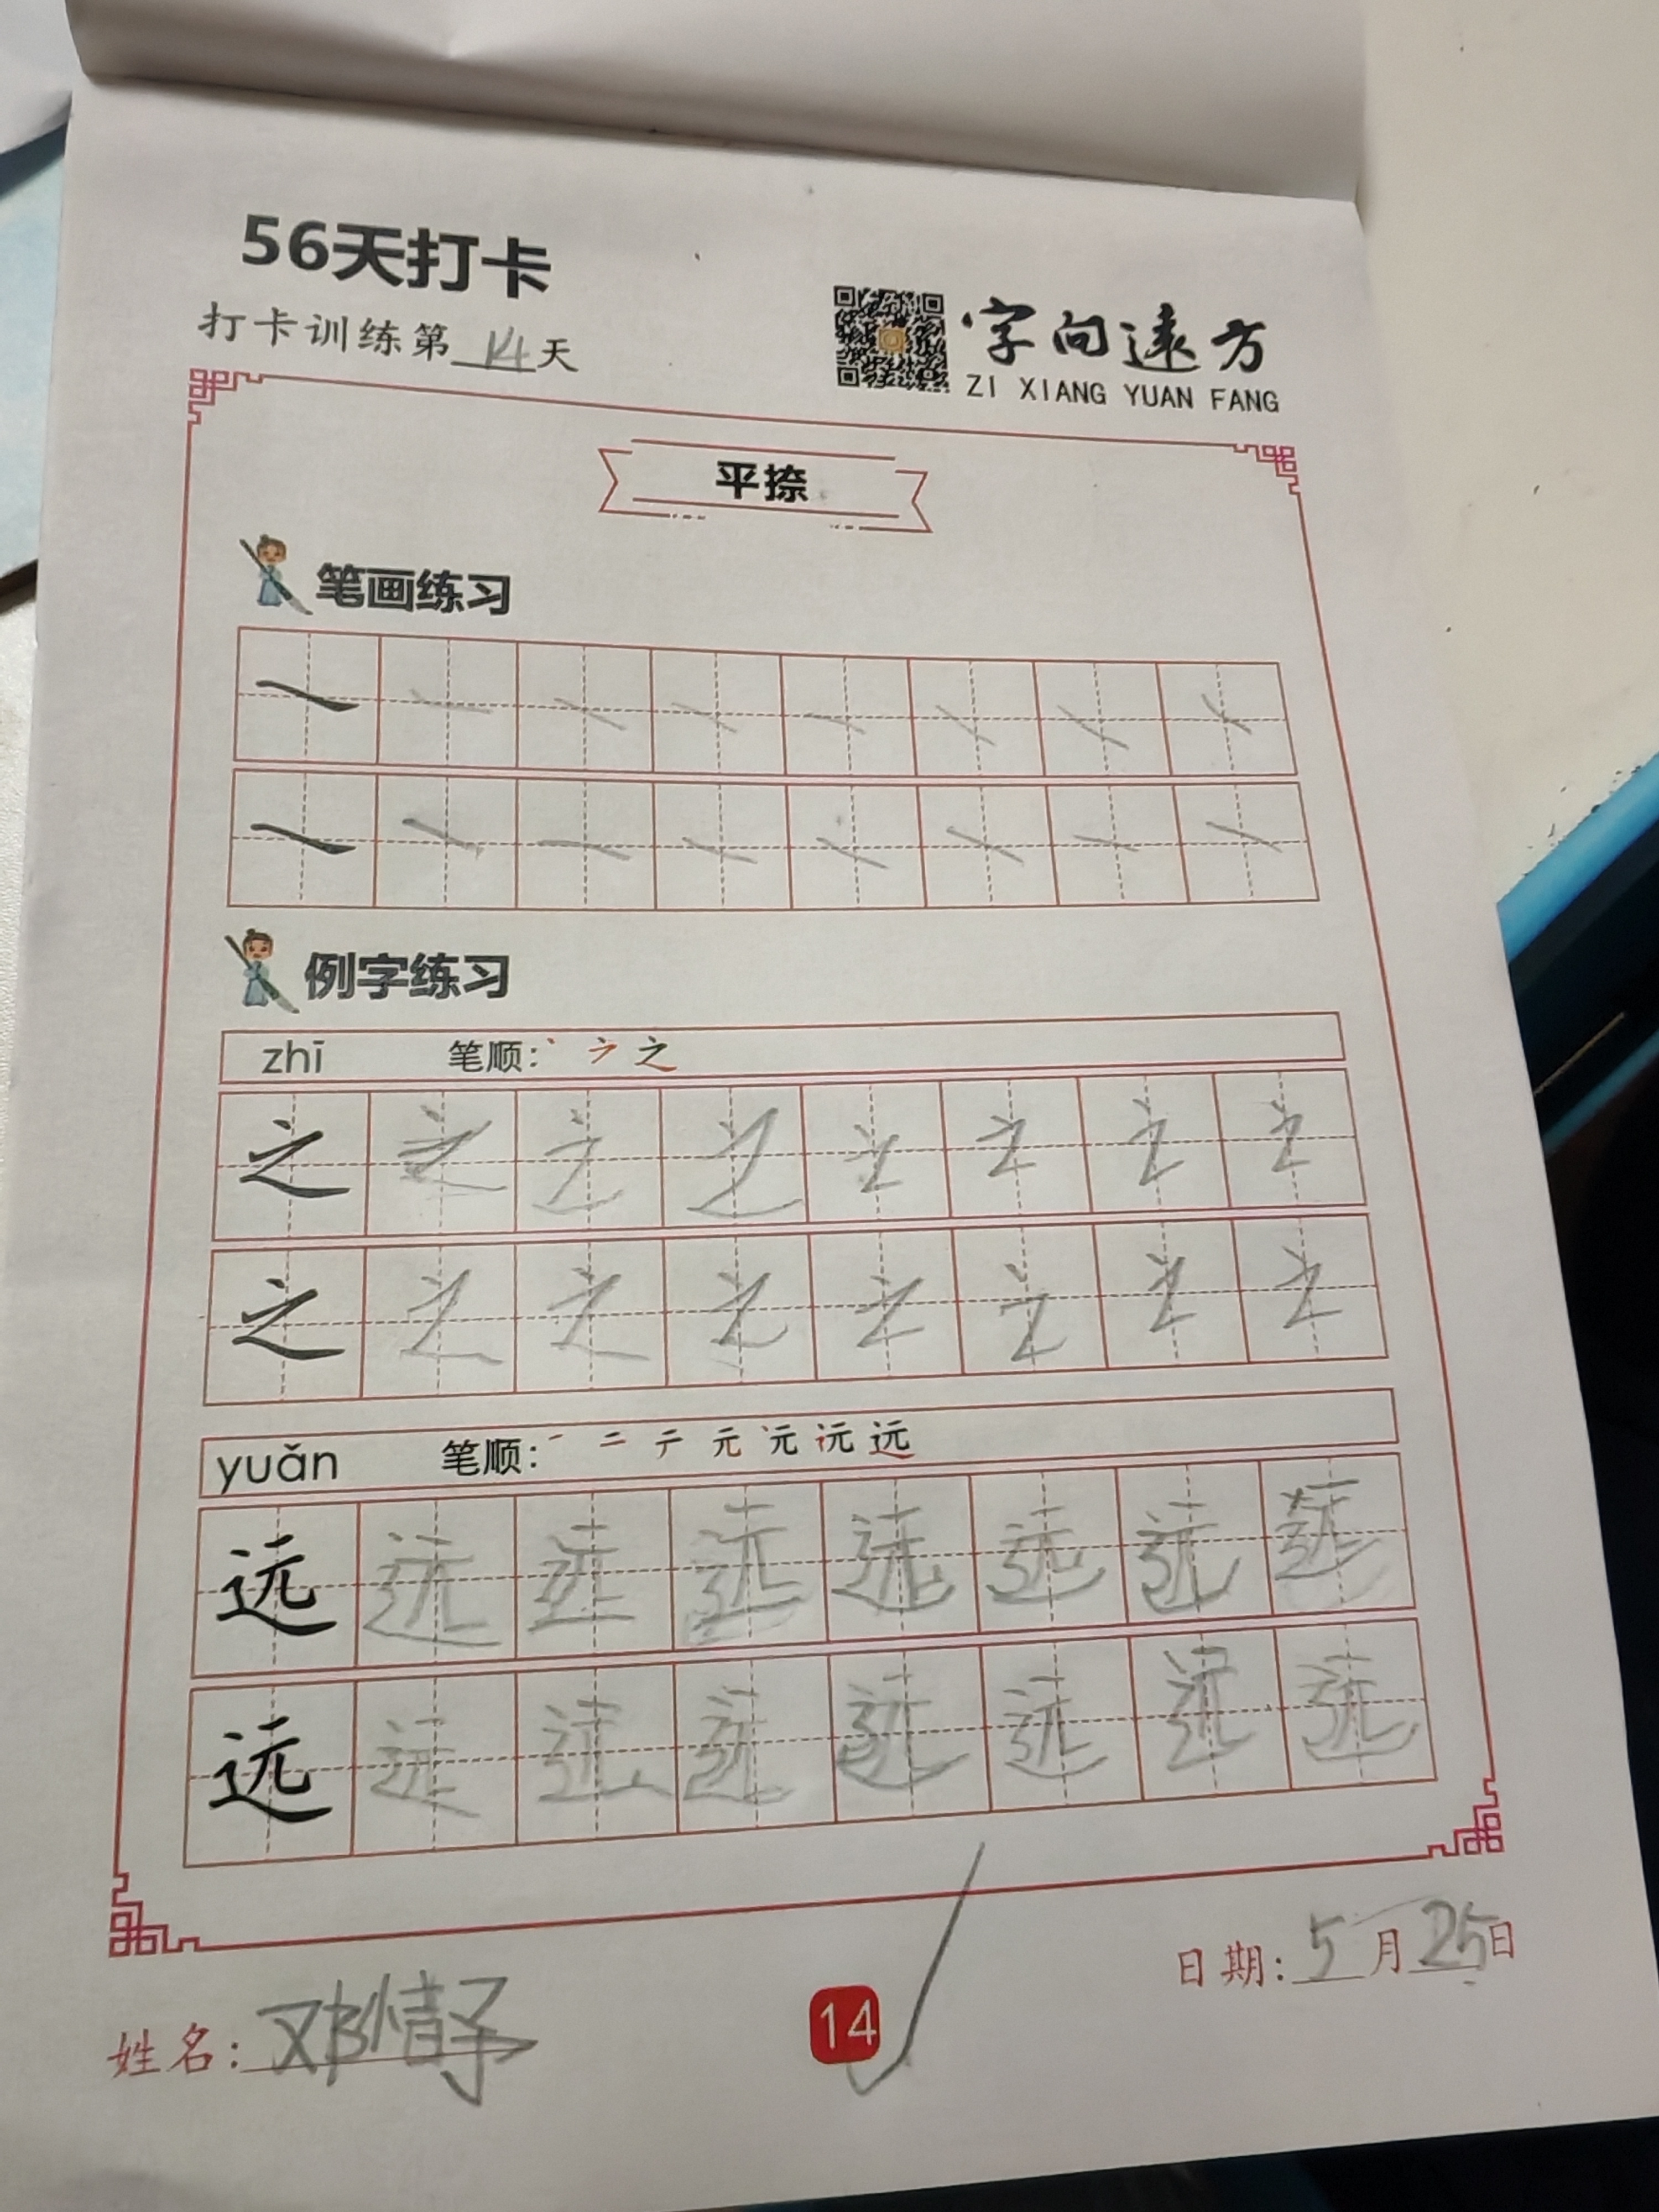 56天打卡
打卡训练第14天
字向远方
ZI XIANG YUAN FANG
平捺
笔画练习
例字练习
zhī 笔顺: 丶 ㇇ 之
之 之 之 之 之 之 之 之
之 之 之 之 之 之 之 之
yuǎn 笔顺: 一 二 テ 元 远
远 远 远 远 远 远 远 远
远 远 远 远 远 远 远 远
日期: 5月25日
姓名: 邓情子
14